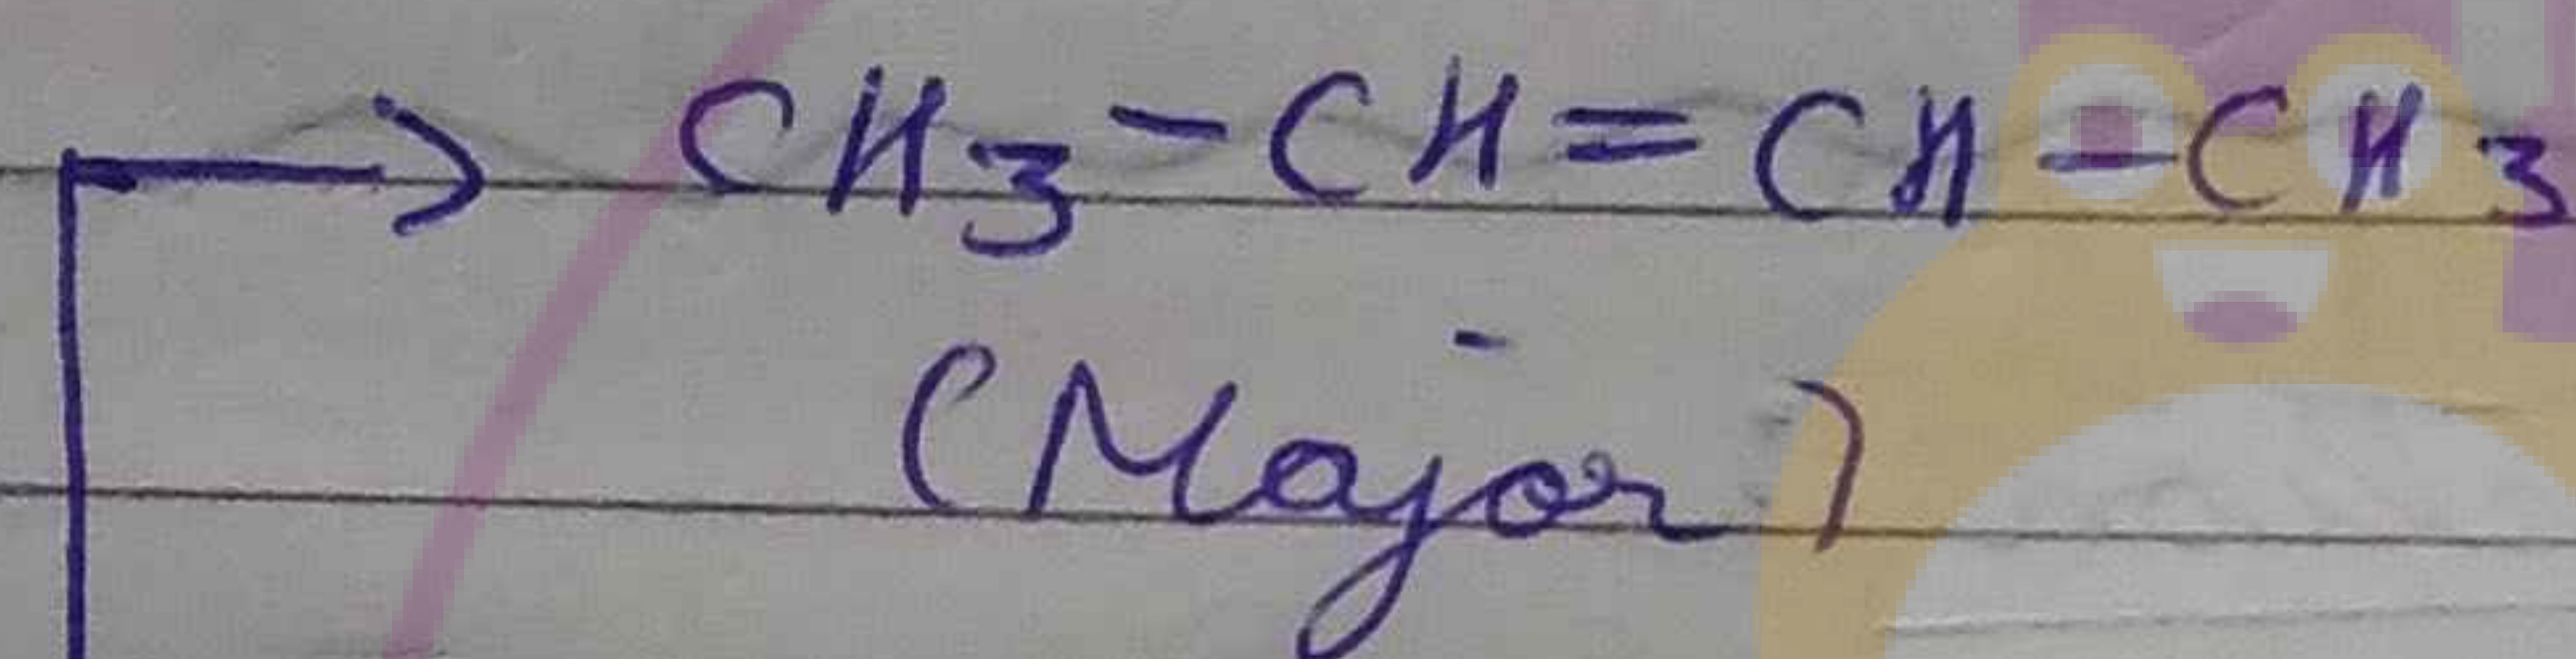 → CH3-CH=CH-CH3
(Major)